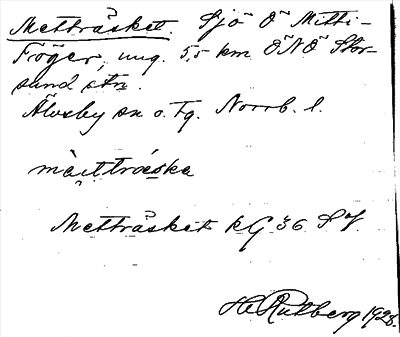 Metträsket. Sjö Ö Mitti-
Fröger, ung. 5,5 km ÖNÖ Stor-
sund stn.
Älvsby sn o. tg. Norrb. l.
Metträsket kG 36 SV.
H. Rutberg 1928.